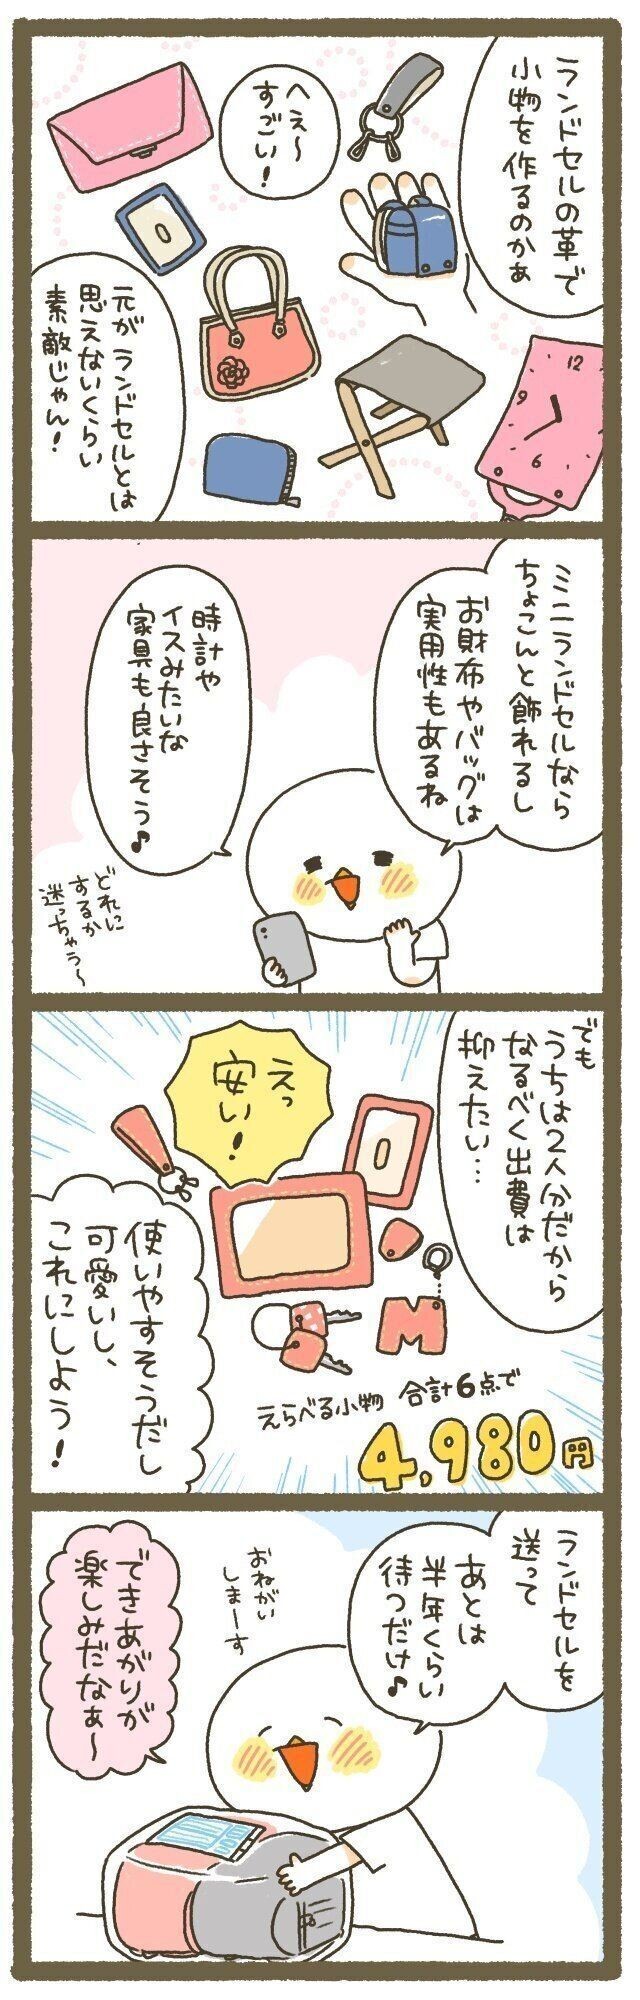 ランドセルの革で
小物を作るのかぁ
へぇ〜
すごい！
元がランドセルとは
思えないくらい
素敵じゃん！
12
9
6
ミニランドセルなら
ちょこんと飾れるし
お財布やバッグは
実用性もあるね
時計や
イスみたいな
家具も良さそう♪
どれに
するか
迷っちゃう〜
でも
うちは2人分だから
なるべく出費は
抑えたい…
えっ
安い！
M
えらべる小物 合計6点で
4,980円
使いやすそうだし
可愛いし、
これにしよう！
ランドセルを
送って
あとは
半年くらい
待つだけ♪
おねがい
しまーす
できあがりが
楽しみだなぁ〜